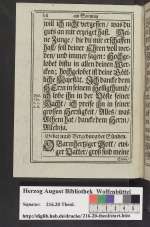 will ich nicht vergessen / was du
guts an mir erzeiget hast. Mei-
ne Zunge / die du mir erschaffen
hast / soll deiner Ehren voll wer-
den / und immer sagen: Hoch-
gelobet bistu in allen deinen Wer-
cken / hochgelobet ist deine Gött-
liche Majestät. Ich dancke dem
HErrn in seinem Heiligthumb /
ich lobe ihn in der Feste seiner
Macht / ich preise ihn in seiner
grossen Herrligkeit / Alles was
Athem hat / dancke dem Herrn /
Alleluja.
Gebet umb Vergebung der Sünden.
O Barmhertziger Gott / ewi-
ger Vatter / groß sind meine
Herzog August Bibliothek Wolfenbüttel
Signatur: 216.20 Theol.
http://diglib.hab.de/drucke/216-20-theol/start.htm